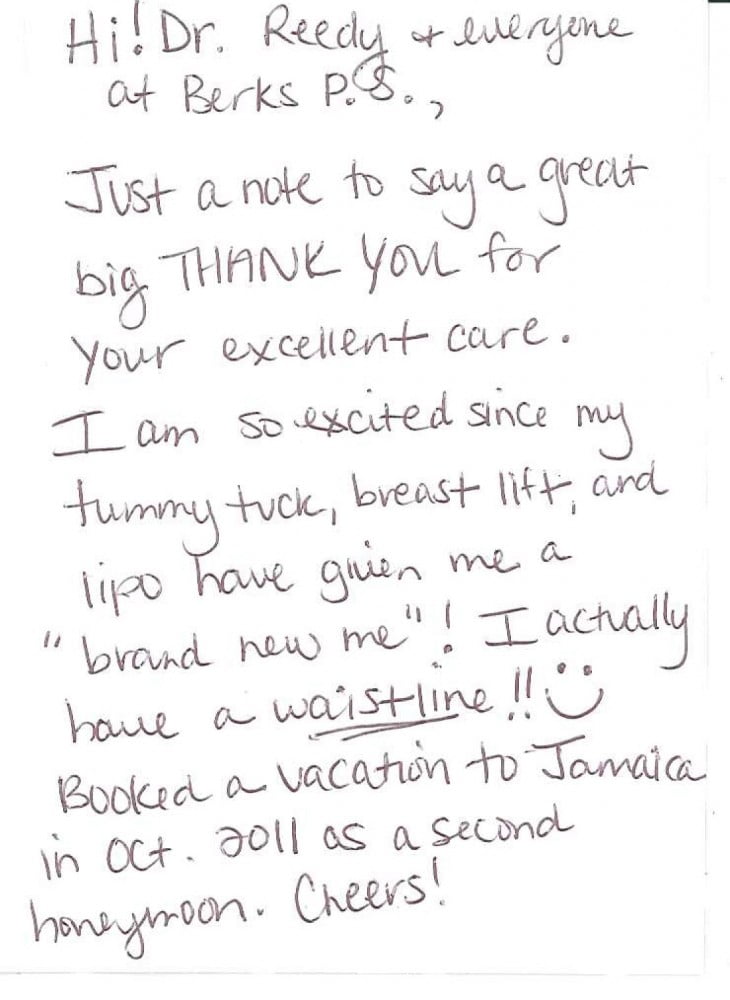 Hi! Dr. Reedy + everyone
at Berks P.S.,
Just a note to say a great
big THANK YOU for
your excellent care.
I am so excited since my
tummy tuck, breast lift, and
lipo have given me a
"brand new me"! I actually
have a waistline!! :)
Booked a vacation to Jamaica
in Oct. 2011 as a second
honeymoon. Cheers!